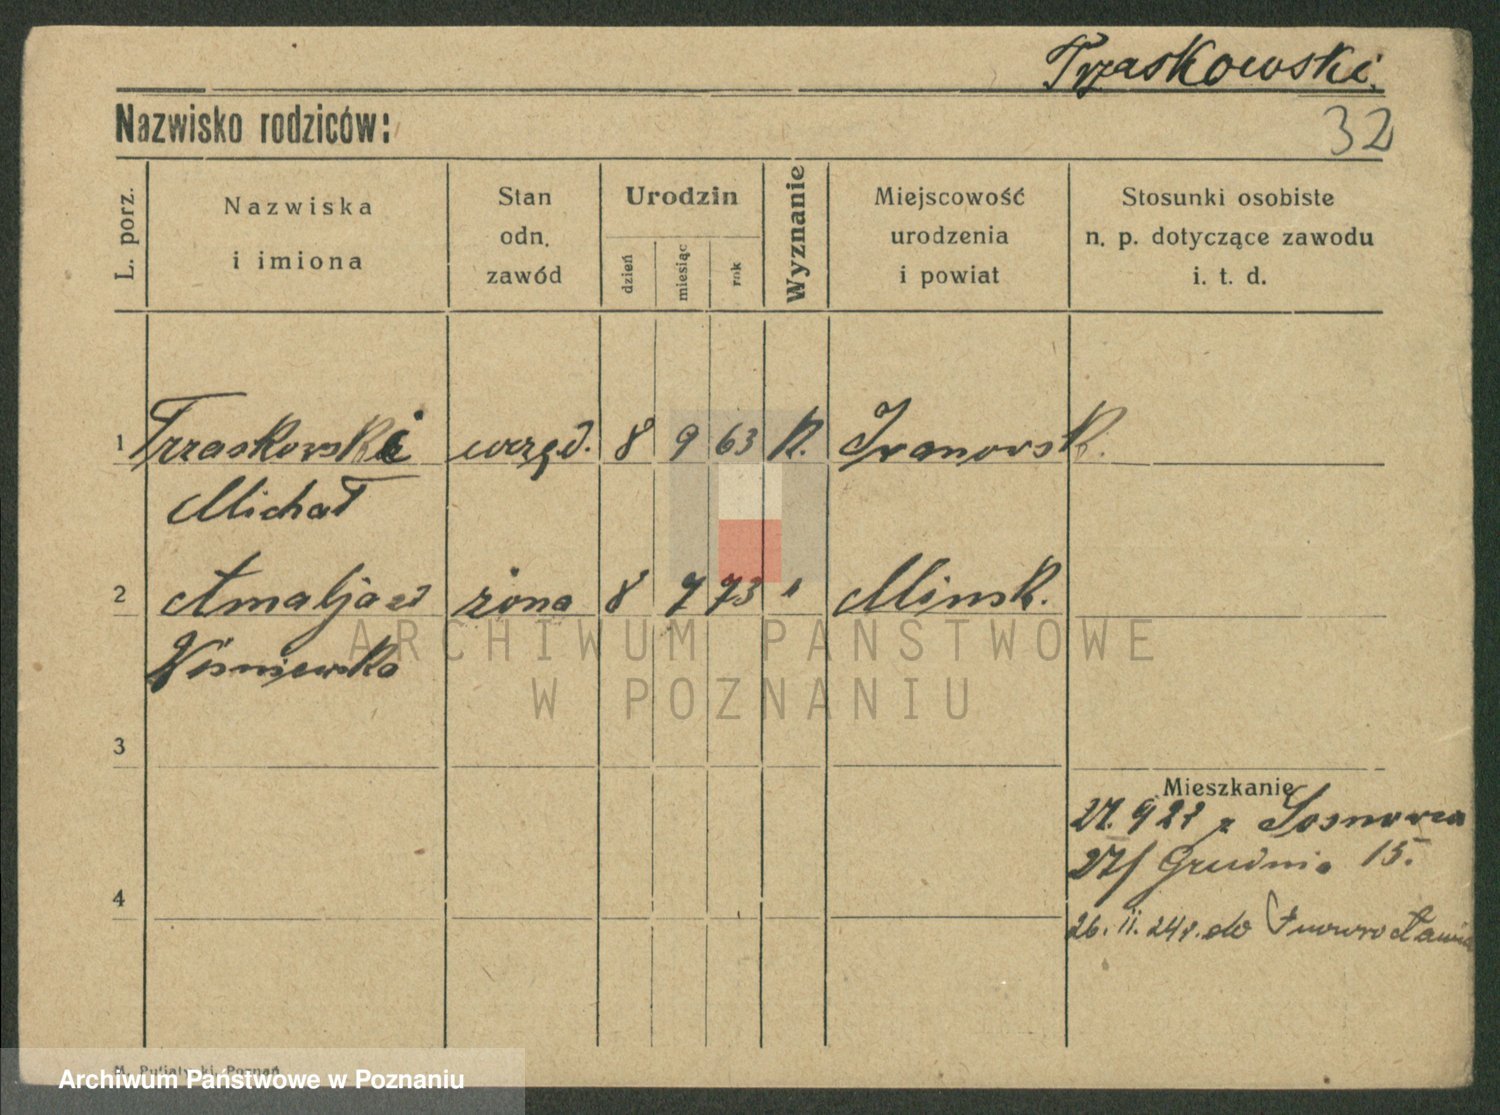 Trzaskowski.
Nazwisko rodziców:
32
L. porz.
Nazwiska
i imiona
Stan
odn.
zawód
Urodzin
dzień
miesiąc
rok
Wyznanie
Miejscowość
urodzenia
i powiat
Stosunki osobiste
n. p. dotyczące zawodu
i. t. d.
1 Trzaskowski urzęd. 8 9 63 K. Iwanowsk.
Michał
2 Amalja zd żona 8 7 73 " Minsk.
Wiśniewska
ARCHIWUM PAŃSTWOWE
W POZNANIU
3
Mieszkanie
27.9 21 z Sosnowca
27/ Grudnia 15.
4
26.II.24r. do Inowrocławia
M. Putiatycki, Poznań
Archiwum Państwowe w Poznaniu